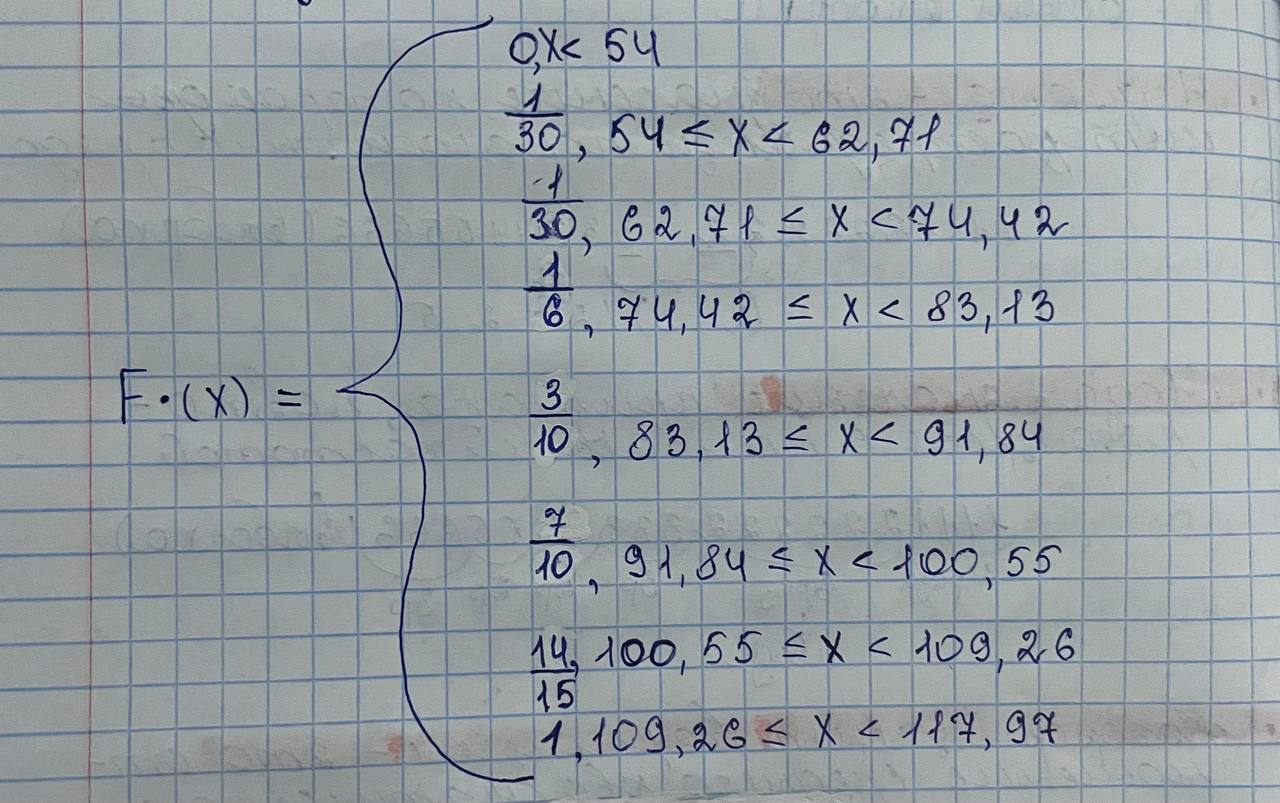 0, x < 54
1/30, 54 ≤ x < 62,71
1/30, 62,71 ≤ x < 74,42
1/6, 74,42 ≤ x < 83,13
F*(x) =
3/10, 83,13 ≤ x < 91,84
7/10, 91,84 ≤ x < 100,55
14/15, 100,55 ≤ x < 109,26
1, 109,26 ≤ x < 117,97